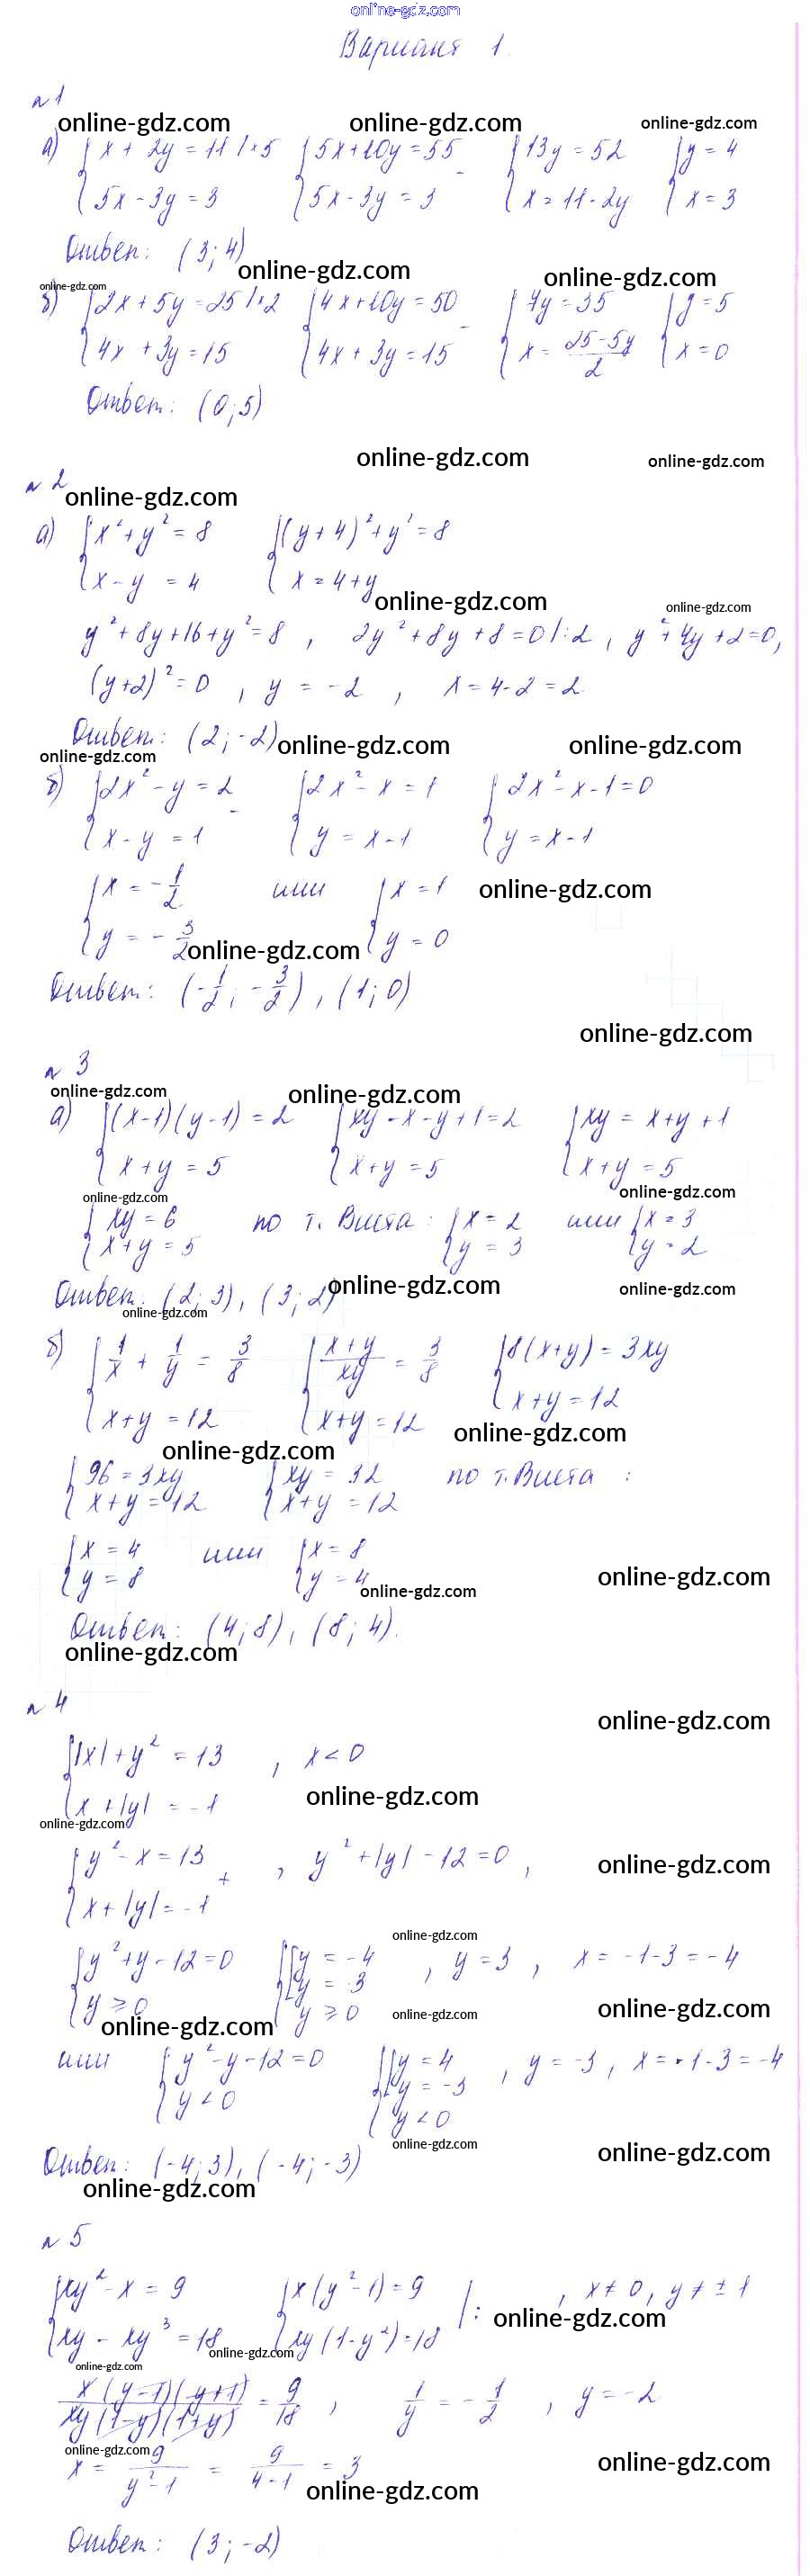 online-gdz.com
Вариант 1.
№1
online-gdz.com online-gdz.com online-gdz.com
а) { x + 2y = 11 | ×5 { 5x + 10y = 55 - { 13y = 52 { y = 4
{ 5x - 3y = 3 { 5x - 3y = 3 { x = 11 - 2y { x = 3
Ответ: (3; 4)
online-gdz.com online-gdz.com
online-gdz.com
б) { 2x + 5y = 25 | ×2 { 4x + 10y = 50 - { 7y = 35 { y = 5
{ 4x + 3y = 15 { 4x + 3y = 15 { x = (25 - 5y)/2 { x = 0
Ответ: (0; 5)
online-gdz.com online-gdz.com
№2
online-gdz.com
а) { x² + y² = 8 { (y + 4)² + y² = 8
{ x - y = 4 { x = 4 + y
online-gdz.com online-gdz.com
y² + 8y + 16 + y² = 8 , 2y² + 8y + 8 = 0 | :2 , y² + 4y + 2 = 0,
(y+2)² = 0 , y = -2 , x = 4 - 2 = 2
Ответ: (2; -2)
online-gdz.com online-gdz.com
online-gdz.com
б) { 2x² - y = 2 - { 2x² - x = 1 { 2x² - x - 1 = 0
{ x - y = 1 { y = x - 1 { y = x - 1
{ x = -1/2 или { x = 1
online-gdz.com
{ y = -3/2 { y = 0
online-gdz.com
Ответ: (-1/2; -3/2), (1; 0)
online-gdz.com
№ 3
online-gdz.com online-gdz.com
а) { (x-1)(y-1) = 2 { xy - x - y + 1 = 2 { xy = x + y + 1
{ x + y = 5 { x + y = 5 { x + y = 5
online-gdz.com online-gdz.com
{ xy = 6 по т. Виета: { x = 2 или { x = 3
{ x + y = 5 { y = 3 { y = 2
Ответ: (2; 3), (3; 2)
online-gdz.com online-gdz.com
online-gdz.com
б) { 1/x + 1/y = 3/8 { (x+y)/xy = 3/8 { 8(x+y) = 3xy
{ x + y = 12 { x + y = 12 { x + y = 12
online-gdz.com online-gdz.com
{ 96 = 3xy { xy = 32 по т. Виета :
{ x + y = 12 { x + y = 12
{ x = 4 или { x = 8
{ y = 8 { y = 4
online-gdz.com online-gdz.com
Ответ: (4; 8), (8; 4).
online-gdz.com
№ 4
online-gdz.com
{ |x| + y² = 13 , x < 0
{ x + |y| = -1
online-gdz.com
online-gdz.com
{ y² - x = 13 + , y² + |y| - 12 = 0 ,
{ x + |y| = -1
online-gdz.com
online-gdz.com
{ y² + y - 12 = 0 { [ y = -4 , y = 3 , x = -1 - 3 = -4
{ y ≥ 0 [ y = 3
{ y ≥ 0
online-gdz.com online-gdz.com online-gdz.com
или { y² - y - 12 = 0 { [ y = 4 , y = -3 , x = -1 - 3 = -4
{ y < 0 [ y = -3
{ y < 0
online-gdz.com online-gdz.com
Ответ: (-4; 3), (-4; -3)
online-gdz.com
№ 5
{ xy² - x = 9 { x(y² - 1) = 9 | : , x ≠ 0, y ≠ ± 1
{ xy - xy³ = 18 { xy(1 - y²) = 18
online-gdz.com online-gdz.com
online-gdz.com
x(y-1)(y+1) / xy(1-y)(1+y) = 9/18 , 1/y = -1/2 , y = -2
online-gdz.com online-gdz.com
x = 9/(y² - 1) = 9/(4 - 1) = 3
online-gdz.com
Ответ: (3; -2)